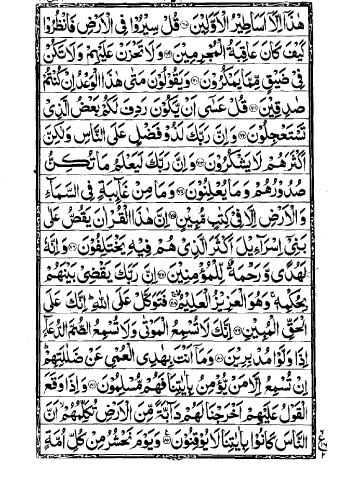 هٰذَاۤ اِلَّاۤ اَسَاطِيْرُ الْاَوَّلِيْنَ ۝ قُلْ سِيْرُوْا فِى الْاَرْضِ فَانْظُرُوْا
كَيْفَ كَانَ عَاقِبَةُ الْمُجْرِمِيْنَ ۝ وَلَا تَحْزَنْ عَلَيْهِمْ وَلَا تَكُنْ
فِىْ ضَيْقٍ مِّمَّا يَمْكُرُوْنَ ۝ وَيَقُوْلُوْنَ مَتٰى هٰذَا الْوَعْدُ اِنْ كُنْتُمْ
صٰدِقِيْنَ ۝ قُلْ عَسٰۤى اَنْ يَّكُوْنَ رَدِفَ لَكُمْ بَعْضُ الَّذِىْ
تَسْتَعْجِلُوْنَ ۝ وَاِنَّ رَبَّكَ لَذُوْ فَضْلٍ عَلَى النَّاسِ وَلٰكِنَّ
اَكْثَرَهُمْ لَا يَشْكُرُوْنَ ۝ وَاِنَّ رَبَّكَ لَيَعْلَمُ مَا تُكِنُّ
صُدُوْرُهُمْ وَمَا يُعْلِنُوْنَ ۝ وَمَا مِنْ غَآئِبَةٍ فِى السَّمَآءِ
وَالْاَرْضِ اِلَّا فِىْ كِتٰبٍ مُّبِيْنٍ ۝ اِنَّ هٰذَا الْقُرْاٰنَ يَقُصُّ عَلٰى
بَنِىْۤ اِسْرَآءِيْلَ اَكْثَرَ الَّذِىْ هُمْ فِيْهِ يَخْتَلِفُوْنَ ۝ وَاِنَّهٗ
لَهُدًى وَّرَحْمَةٌ لِّلْمُؤْمِنِيْنَ ۝ اِنَّ رَبَّكَ يَقْضِىْ بَيْنَهُمْ
بِحُكْمِهٖ ۚ وَهُوَ الْعَزِيْزُ الْعَلِيْمُ ۝ فَتَوَكَّلْ عَلَى اللّٰهِ ؕ اِنَّكَ عَلَى
الْحَقِّ الْمُبِيْنِ ۝ اِنَّكَ لَا تُسْمِعُ الْمَوْتٰى وَلَا تُسْمِعُ الصُّمَّ الدُّعَآءَ
اِذَا وَلَّوْا مُدْبِرِيْنَ ۝ وَمَاۤ اَنْتَ بِهٰدِى الْعُمْىِ عَنْ ضَلٰلَتِهِمْ ؕ
اِنْ تُسْمِعُ اِلَّا مَنْ يُّؤْمِنُ بِاٰيٰتِنَا فَهُمْ مُّسْلِمُوْنَ ۝ وَاِذَا وَقَعَ
الْقَوْلُ عَلَيْهِمْ اَخْرَجْنَا لَهُمْ دَآبَّةً مِّنَ الْاَرْضِ تُكَلِّمُهُمْ ۙ اَنَّ
النَّاسَ كَانُوْا بِاٰيٰتِنَا لَا يُوْقِنُوْنَ ۝ وَيَوْمَ نَحْشُرُ مِنْ كُلِّ اُمَّةٍ